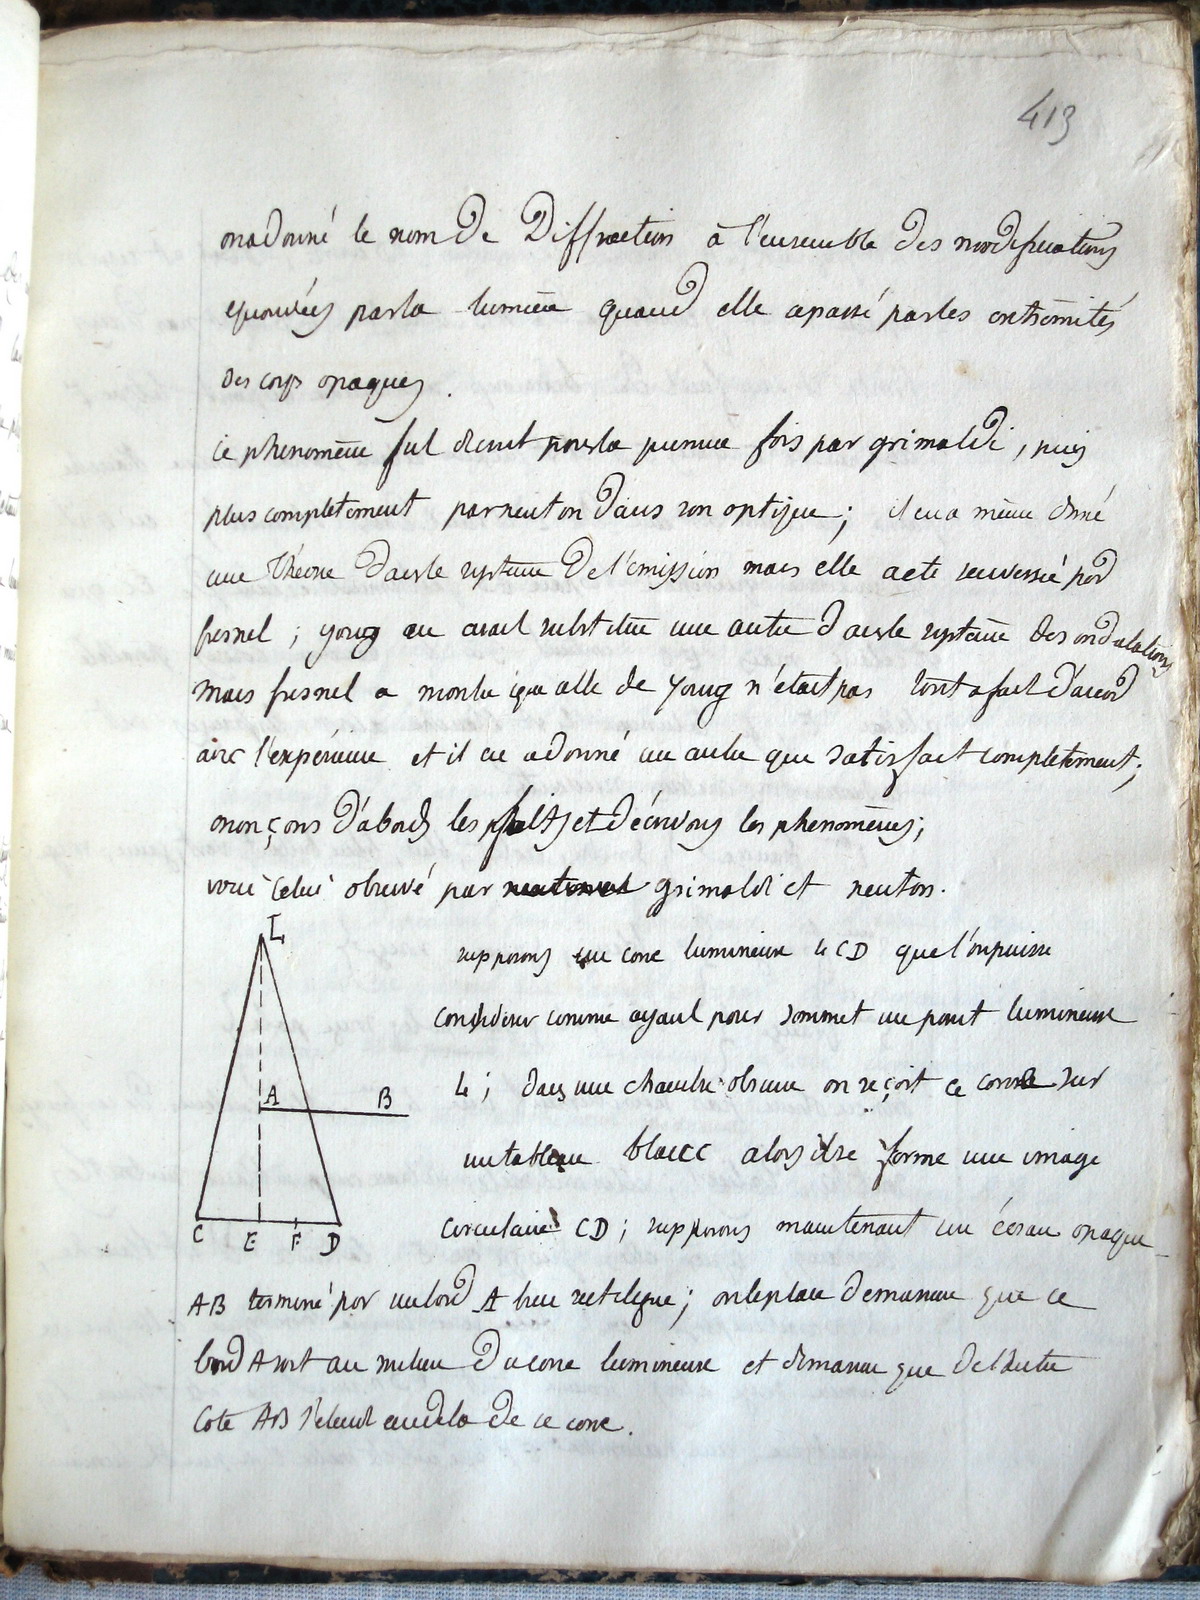 413
on a donné le nom de Diffraction à l'ensemble des modifications
eprouvées par la lumière quand elle a passé par les extrémités
des corps opaques.
ce phenomène fut decrit pour la premiere fois par grimaldi, puis
plus completement par neuton dans son optique; il en a même donné
une théorie dans le systeme De l'émission mais elle a eté renversée par
fresnel; young en avait substitué une autre dans le systême des ondulations
mais fresnel a montré que celle de young n'était pas tout a fait d'accord
avec l'expérience et il en a donné une autre que satisfait completement;
enonçons d'abord les faits et décrivons les phenomènes;
voici celui observé par grimaldi et neuton.
supposons un cone lumineux LCD que l'on puisse
considerer comme ayant pour sommet un point lumineux
L; dans une chambre obscure on reçoit ce cone sur
un tableau blanc alors il se forme une image
circulaire CD; supposons maintenant un écran opaque
AB terminé par un bord A bien rectiligne; on le place de maniere que ce
bord A soit au milieu du cone lumineux et de maniere que de l'autre
coté AB s'etend au dela de ce cone.
L
A B
C E F D